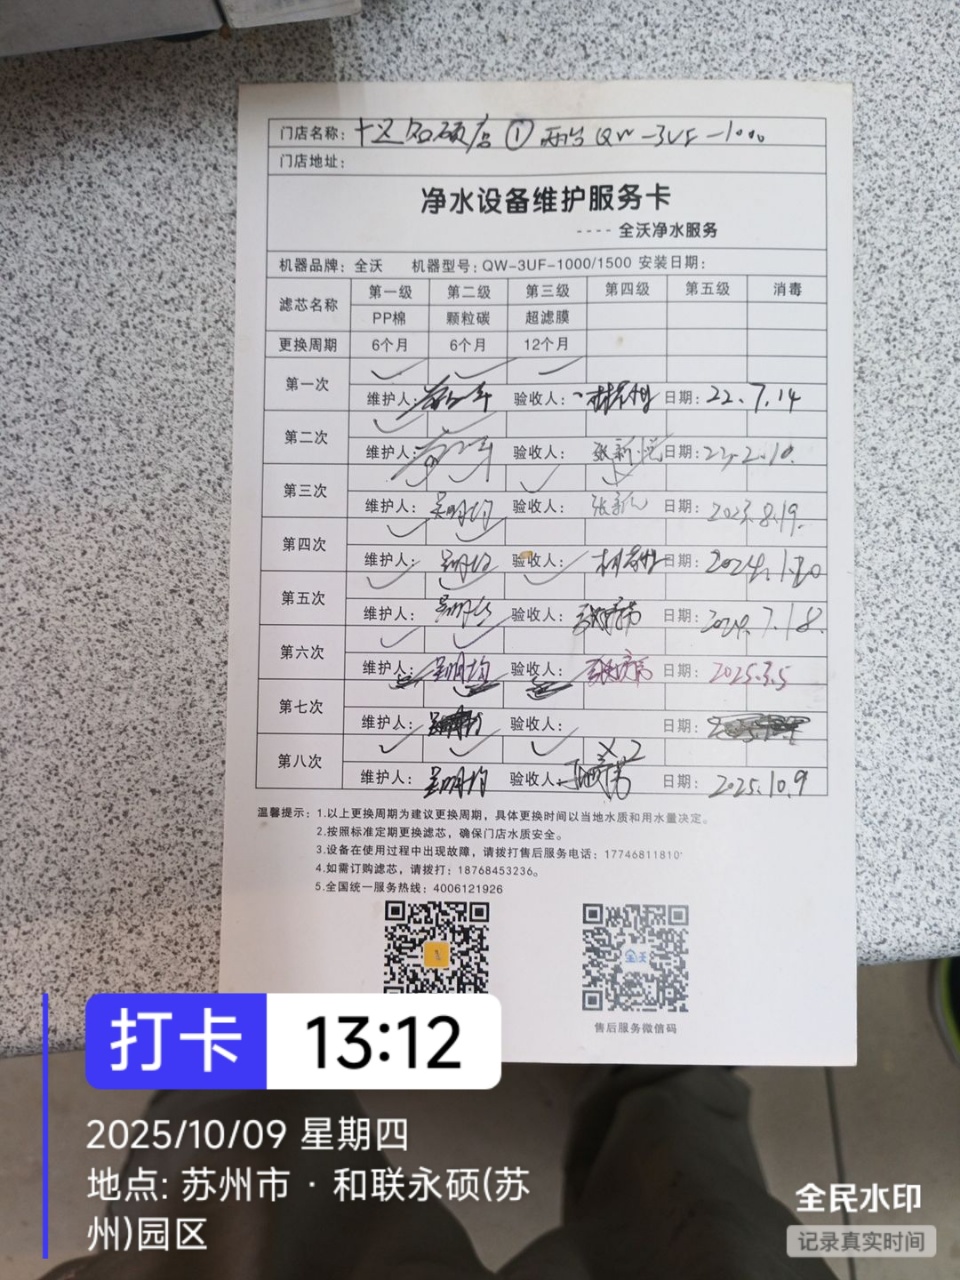 门店名称: 店 ① QW-3UF-1000
门店地址:
净水设备维护服务卡
---- 全沃净水服务
机器品牌: 全沃 机器型号: QW-3UF-1000/1500 安装日期:
滤芯名称 第一级 第二级 第三级 第四级 第五级 消毒
PP棉 颗粒碳 超滤膜
更换周期 6个月 6个月 12个月
第一次
维护人: 验收人: 日期: 22.7.14
第二次
维护人: 验收人: 张新 日期: 23.2.10.
第三次
维护人: 吴明均 验收人: 张新 日期: 2023.8.19.
第四次
维护人: 吴明均 验收人: 日期: 2024.1.
第五次
维护人: 吴明均 验收人: 日期: 2024.7.18.
第六次
维护人: 吴明均 验收人: 日期: 2025.3.5
第七次
维护人: 验收人: 日期:
第八次 ×2
维护人: 吴明均 验收人: 日期: 2025.10.9
温馨提示: 1.以上更换周期为建议更换周期，具体更换时间以当地水质和用水量决定。
2.按照标准定期更换滤芯，确保门店水质安全。
3.设备在使用过程中出现故障，请拨打售后服务电话: 17746811810
4.如需订购滤芯，请拨打: 18768453236。
5.全国统一服务热线: 4006121926
全沃
售后服务微信码
打卡 13:12
2025/10/09 星期四
地点: 苏州市 · 和联永硕(苏
州)园区
全民水印
记录真实时间